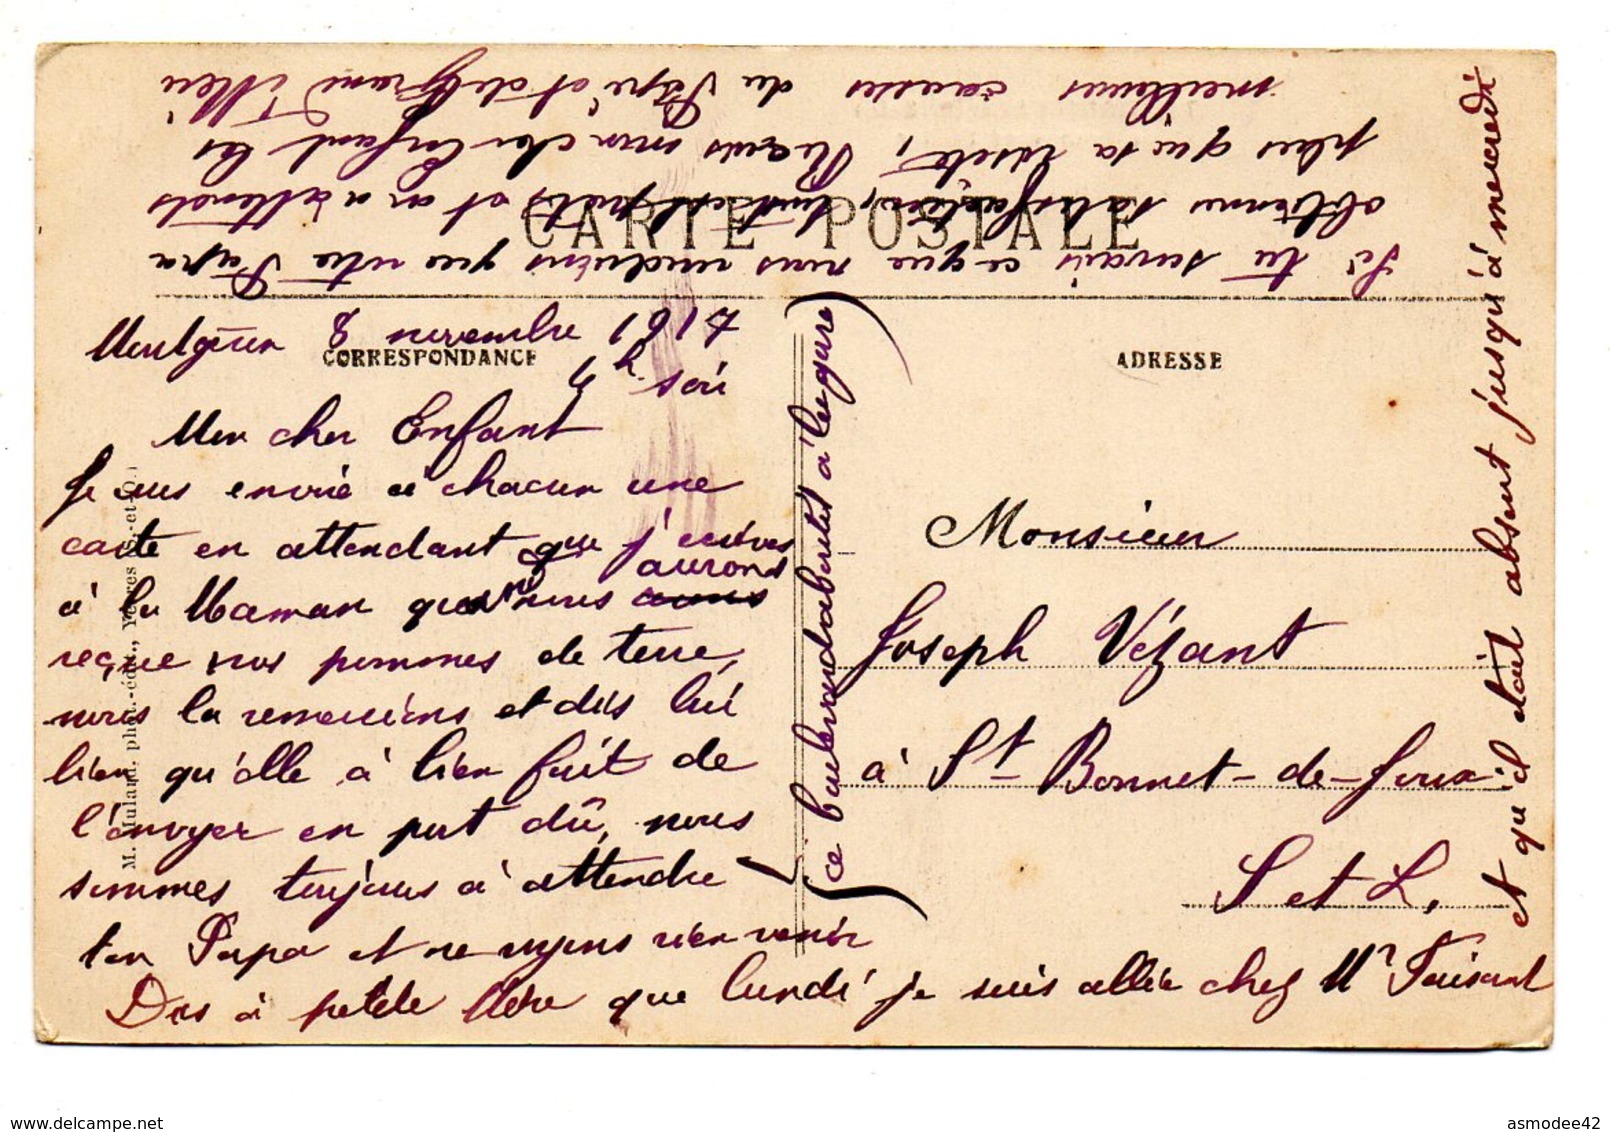 CARTE POSTALE
CORRESPONDANCE
ADRESSE
Montgeron 8 novembre 1917
5h soir
Mon cher Enfant
Je vous envoie à chacun une
carte en attendant que j'écrives
à la Maman que nous aurons
reçue nos pommes de terre,
nous la remercions et dis lui
bien qu'elle à bien fait de
l'envoyer en port dû, nous
sommes toujours à attendre
ton Papa et ne voyons rien venir
Dis à petite Mère que lundi je suis allée chez Mr Faisant
et qu'il était absent jusqu'à mercredi
(ce boulevard aboutit à la gare)
Si tu savais ce que nous voudrions que votre Papa
obtienne satisfaction, tout est prêt, et on n'attends
plus que sa visite, Reçois mon cher Enfant les
meilleures caresses du Pépé et de Grand'Mère
Monsieur
Joseph Vézant
à St Bonnet-de-Joux
S et L.
M. Mulard, phot.-édit., Yerres (S.-et-O.)
asmodee42